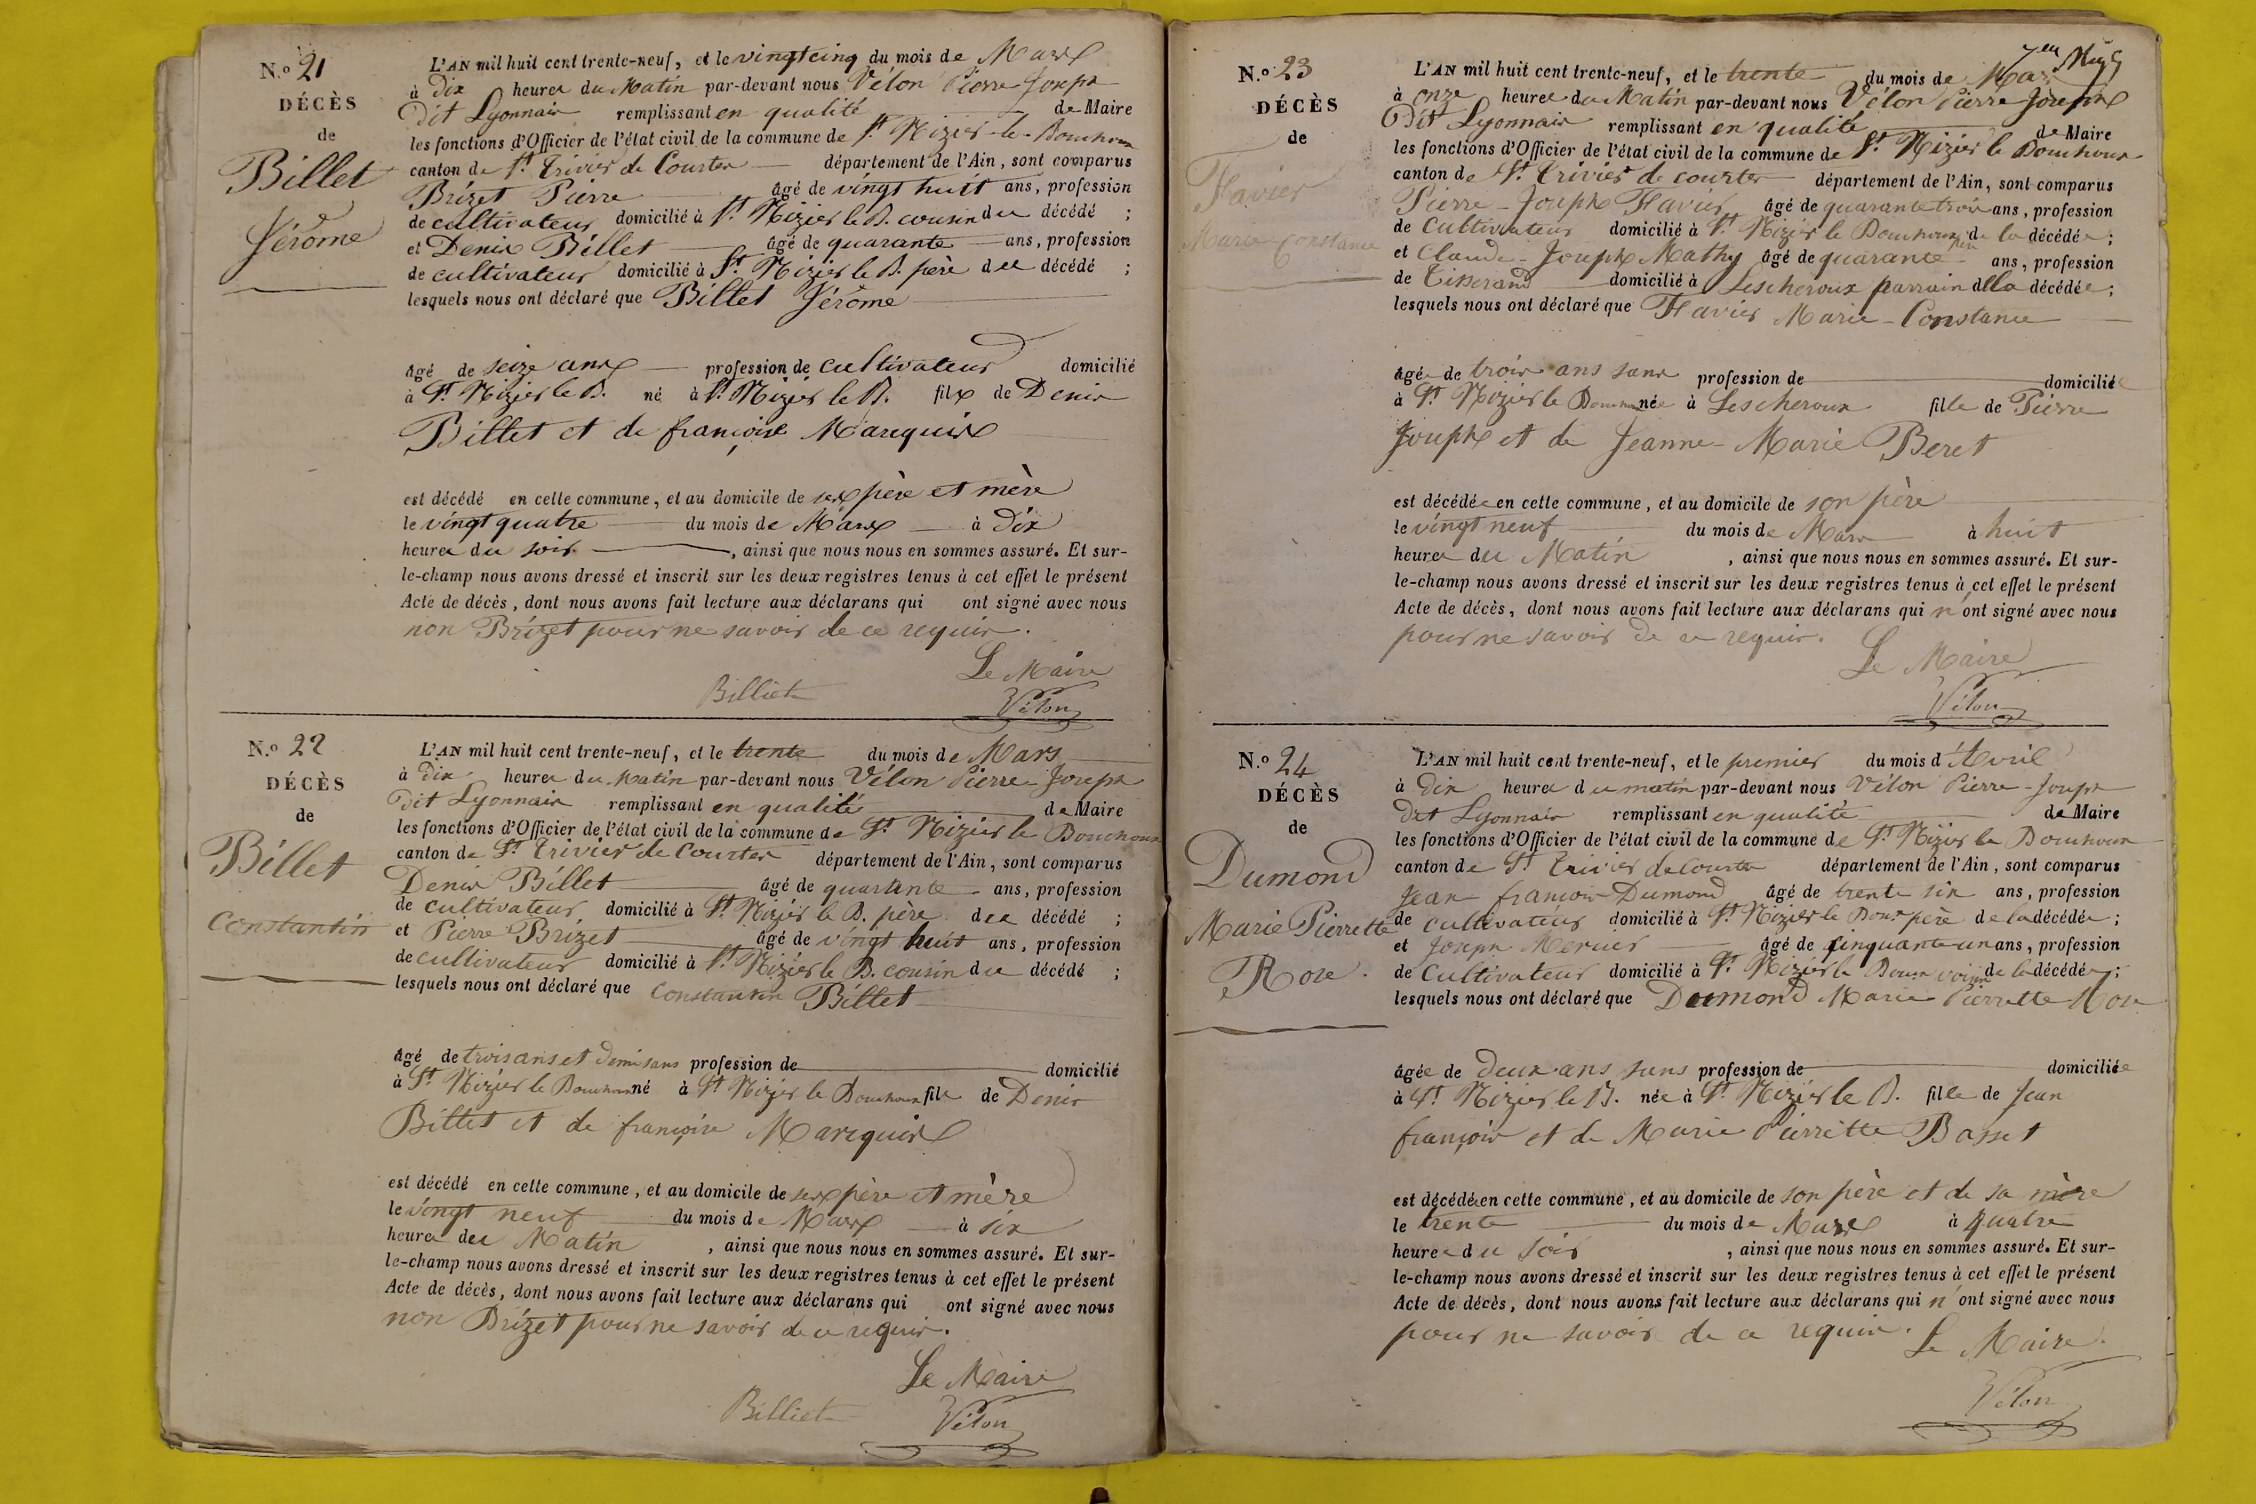 N.o 21
DÉCÈS
de
Billet
Jérôme
L'AN mil huit cent trente-neuf, et le vingt cinq du mois de Mars
à Dix heures du Matin par-devant nous Vélon Pierre Joseph
Dit Lyonnais remplissant en qualité de Maire
les fonctions d'Officier de l'état civil de la commune de St Nizier-le-Bouchoux
canton de St Trivier de Courtes département de l'Ain, sont comparus
Brizet Pierre âgé de vingt huit ans, profession
de cultivateur domicilié à St Nizier le B. cousin du décédé ;
et Denis Billet âgé de quarante ans, profession
de cultivateur domicilié à St Nizier le B. père du décédé ;
lesquels nous ont déclaré que Billet Jérôme
âgé de seize ans profession de cultivateur domicilié
à St Nizier le B. né à St Nizier le B. fils de Denis
Billet et de françoise Marquis
est décédé en cette commune, et au domicile de ses père et mère
le vingt quatre du mois de Mars à dix
heures du soir, ainsi que nous nous en sommes assuré. Et sur-
le-champ nous avons dressé et inscrit sur les deux registres tenus à cet effet le présent
Acte de décès, dont nous avons fait lecture aux déclarans qui ont signé avec nous
non Brizet pour ne savoir de ce requis.
Le Maire
Billiet Vélon
N.o 22
DÉCÈS
de
Billet
Constantin
L'AN mil huit cent trente-neuf, et le trente du mois de Mars
à dix heures du Matin par-devant nous Vélon Pierre-Joseph
dit Lyonnais remplissant en qualité de Maire
les fonctions d'Officier de l'état civil de la commune de St Nizier le Bouchoux
canton de St Trivier de Courtes département de l'Ain, sont comparus
Denis Billet âgé de quarante ans, profession
de cultivateur domicilié à St Nizier le B. père du décédé ;
et Pierre Brizet âgé de vingt huit ans, profession
de cultivateur domicilié à St Nizier le B. cousin du décédé ;
lesquels nous ont déclaré que Constantin Billet
âgé de trois ans et demi sans profession de domicilié
à St Nizier le Bouchoux né à St Nizier le Bouchoux fils de Denis
Billet et de françoise Marquis
est décédé en cette commune, et au domicile de ses père et mère
le vingt neuf du mois de Mars à six
heures du Matin, ainsi que nous nous en sommes assuré. Et sur-
le-champ nous avons dressé et inscrit sur les deux registres tenus à cet effet le présent
Acte de décès, dont nous avons fait lecture aux déclarans qui ont signé avec nous
non Brizet pour ne savoir de ce requis.
Le Maire
Billiet Vélon
N.o 23
DÉCÈS
de
Flavier
Marie-Constance
L'AN mil huit cent trente-neuf, et le trente du mois de Mars
à onze heures du Matin par-devant nous Vélon Pierre Joseph
Dit Lyonnais remplissant en qualité de Maire
les fonctions d'Officier de l'état civil de la commune de St Nizier le Bouchoux
canton de St Trivier de courtes département de l'Ain, sont comparus
Pierre-Joseph Flavier âgé de quarante trois ans, profession
de cultivateur domicilié à St Nizier le Bouchoux père de la décédée ;
et Claude-Joseph Mathy âgé de quarante ans, profession
de Tisserand domicilié à Lescheroux parrain de la décédée ;
lesquels nous ont déclaré que Flavier Marie-Constance
âgée de trois ans sans profession de domiciliée
à St Nizier le Bouchoux née à Lescheroux fille de Pierre
Joseph et de Jeanne-Marie Beret
est décédée en cette commune, et au domicile de son père
le vingt neuf du mois de Mars à huit
heures du Matin, ainsi que nous nous en sommes assuré. Et sur-
le-champ nous avons dressé et inscrit sur les deux registres tenus à cet effet le présent
Acte de décès, dont nous avons fait lecture aux déclarans qui n'ont signé avec nous
pour ne savoir de ce requis.
Le Maire
Vélon
N.o 24
DÉCÈS
de
Dumond
Marie Pierrette
Rose.
L'AN mil huit cent trente-neuf, et le premier du mois d'Avril
à dix heures du matin par-devant nous Vélon Pierre-Joseph
Dit Lyonnais remplissant en qualité de Maire
les fonctions d'Officier de l'état civil de la commune de St Nizier le Bouchoux
canton de St Trivier de courtes département de l'Ain, sont comparus
Jean françois Dumond âgé de trente six ans, profession
de cultivateur domicilié à St Nizier le Boux père de la décédée ;
et Joseph Mercier âgé de cinquante un ans, profession
de cultivateur domicilié à St Nizier le Boux voisin de la décédée ;
lesquels nous ont déclaré que Dumond Marie Pierrette Rose
âgée de deux ans sans profession de domiciliée
à St Nizier le B. née à St Nizier le B. fille de Jean
françois et de Marie Pierrette Basset
est décédée en cette commune, et au domicile de son père et de sa mère
le trente du mois de Mars à quatre
heures du soir, ainsi que nous nous en sommes assuré. Et sur-
le-champ nous avons dressé et inscrit sur les deux registres tenus à cet effet le présent
Acte de décès, dont nous avons fait lecture aux déclarans qui n'ont signé avec nous
pour ne savoir de ce requis. Le Maire.
Vélon